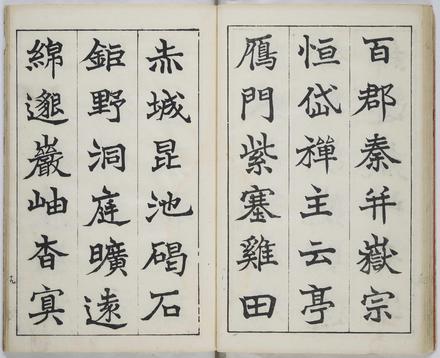 百郡秦并嶽宗
恒岱禪主云亭
鴈門紫塞雞田
赤城昆池碣石
鉅野洞庭曠遠
綿邈巖岫杳冥
九